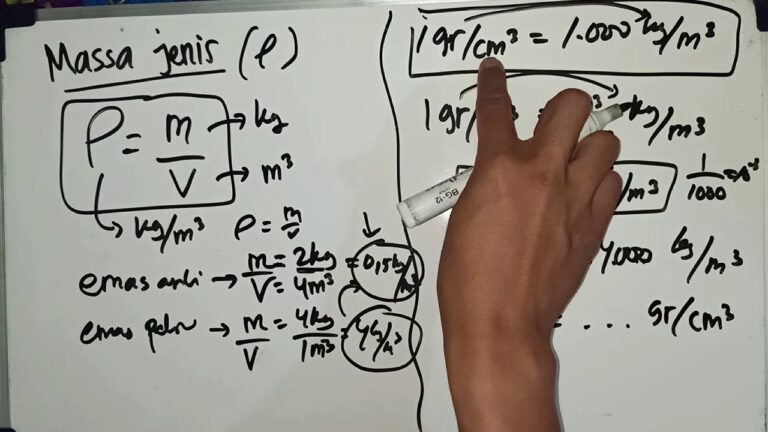 Massa jenis (ρ)
ρ = m/V
kg
m³
kg/m³
ρ = m/v
emas asli → m/V = 2kg/4m³ = 0,5kg/m³
emas palsu → m/V = 4kg/1m³ = 4kg/m³
1 gr/cm³ = 1.000 kg/m³
1 gr/
kg/m³
/m³
1/1000
4000 kg/m³
= ... gr/cm³
BG-12